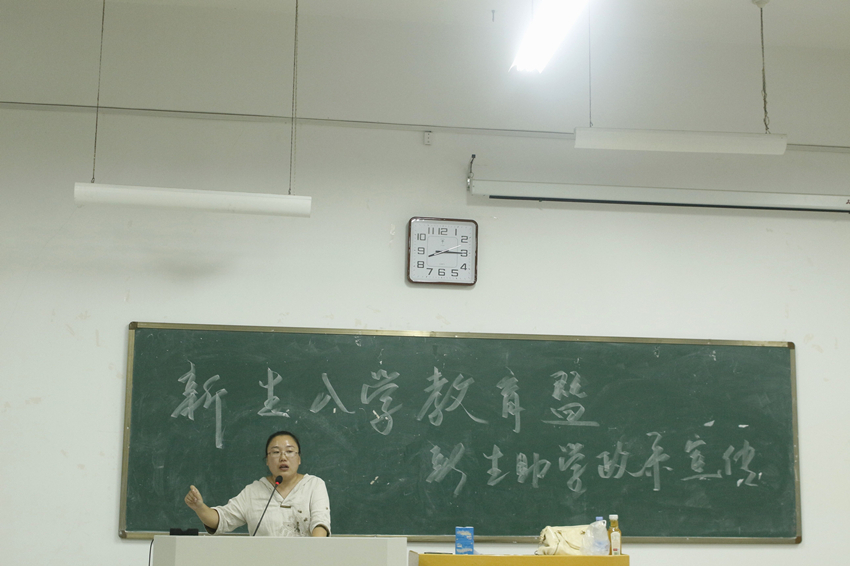 11 12 1
10 2
9 3
8 4
7 6 5
新生入学教育暨
新生助学政策宣传